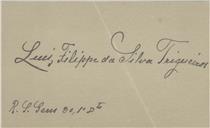 Luis Filippe da Silva Trigueiros
R. S. Gens 30, 1º Dtº